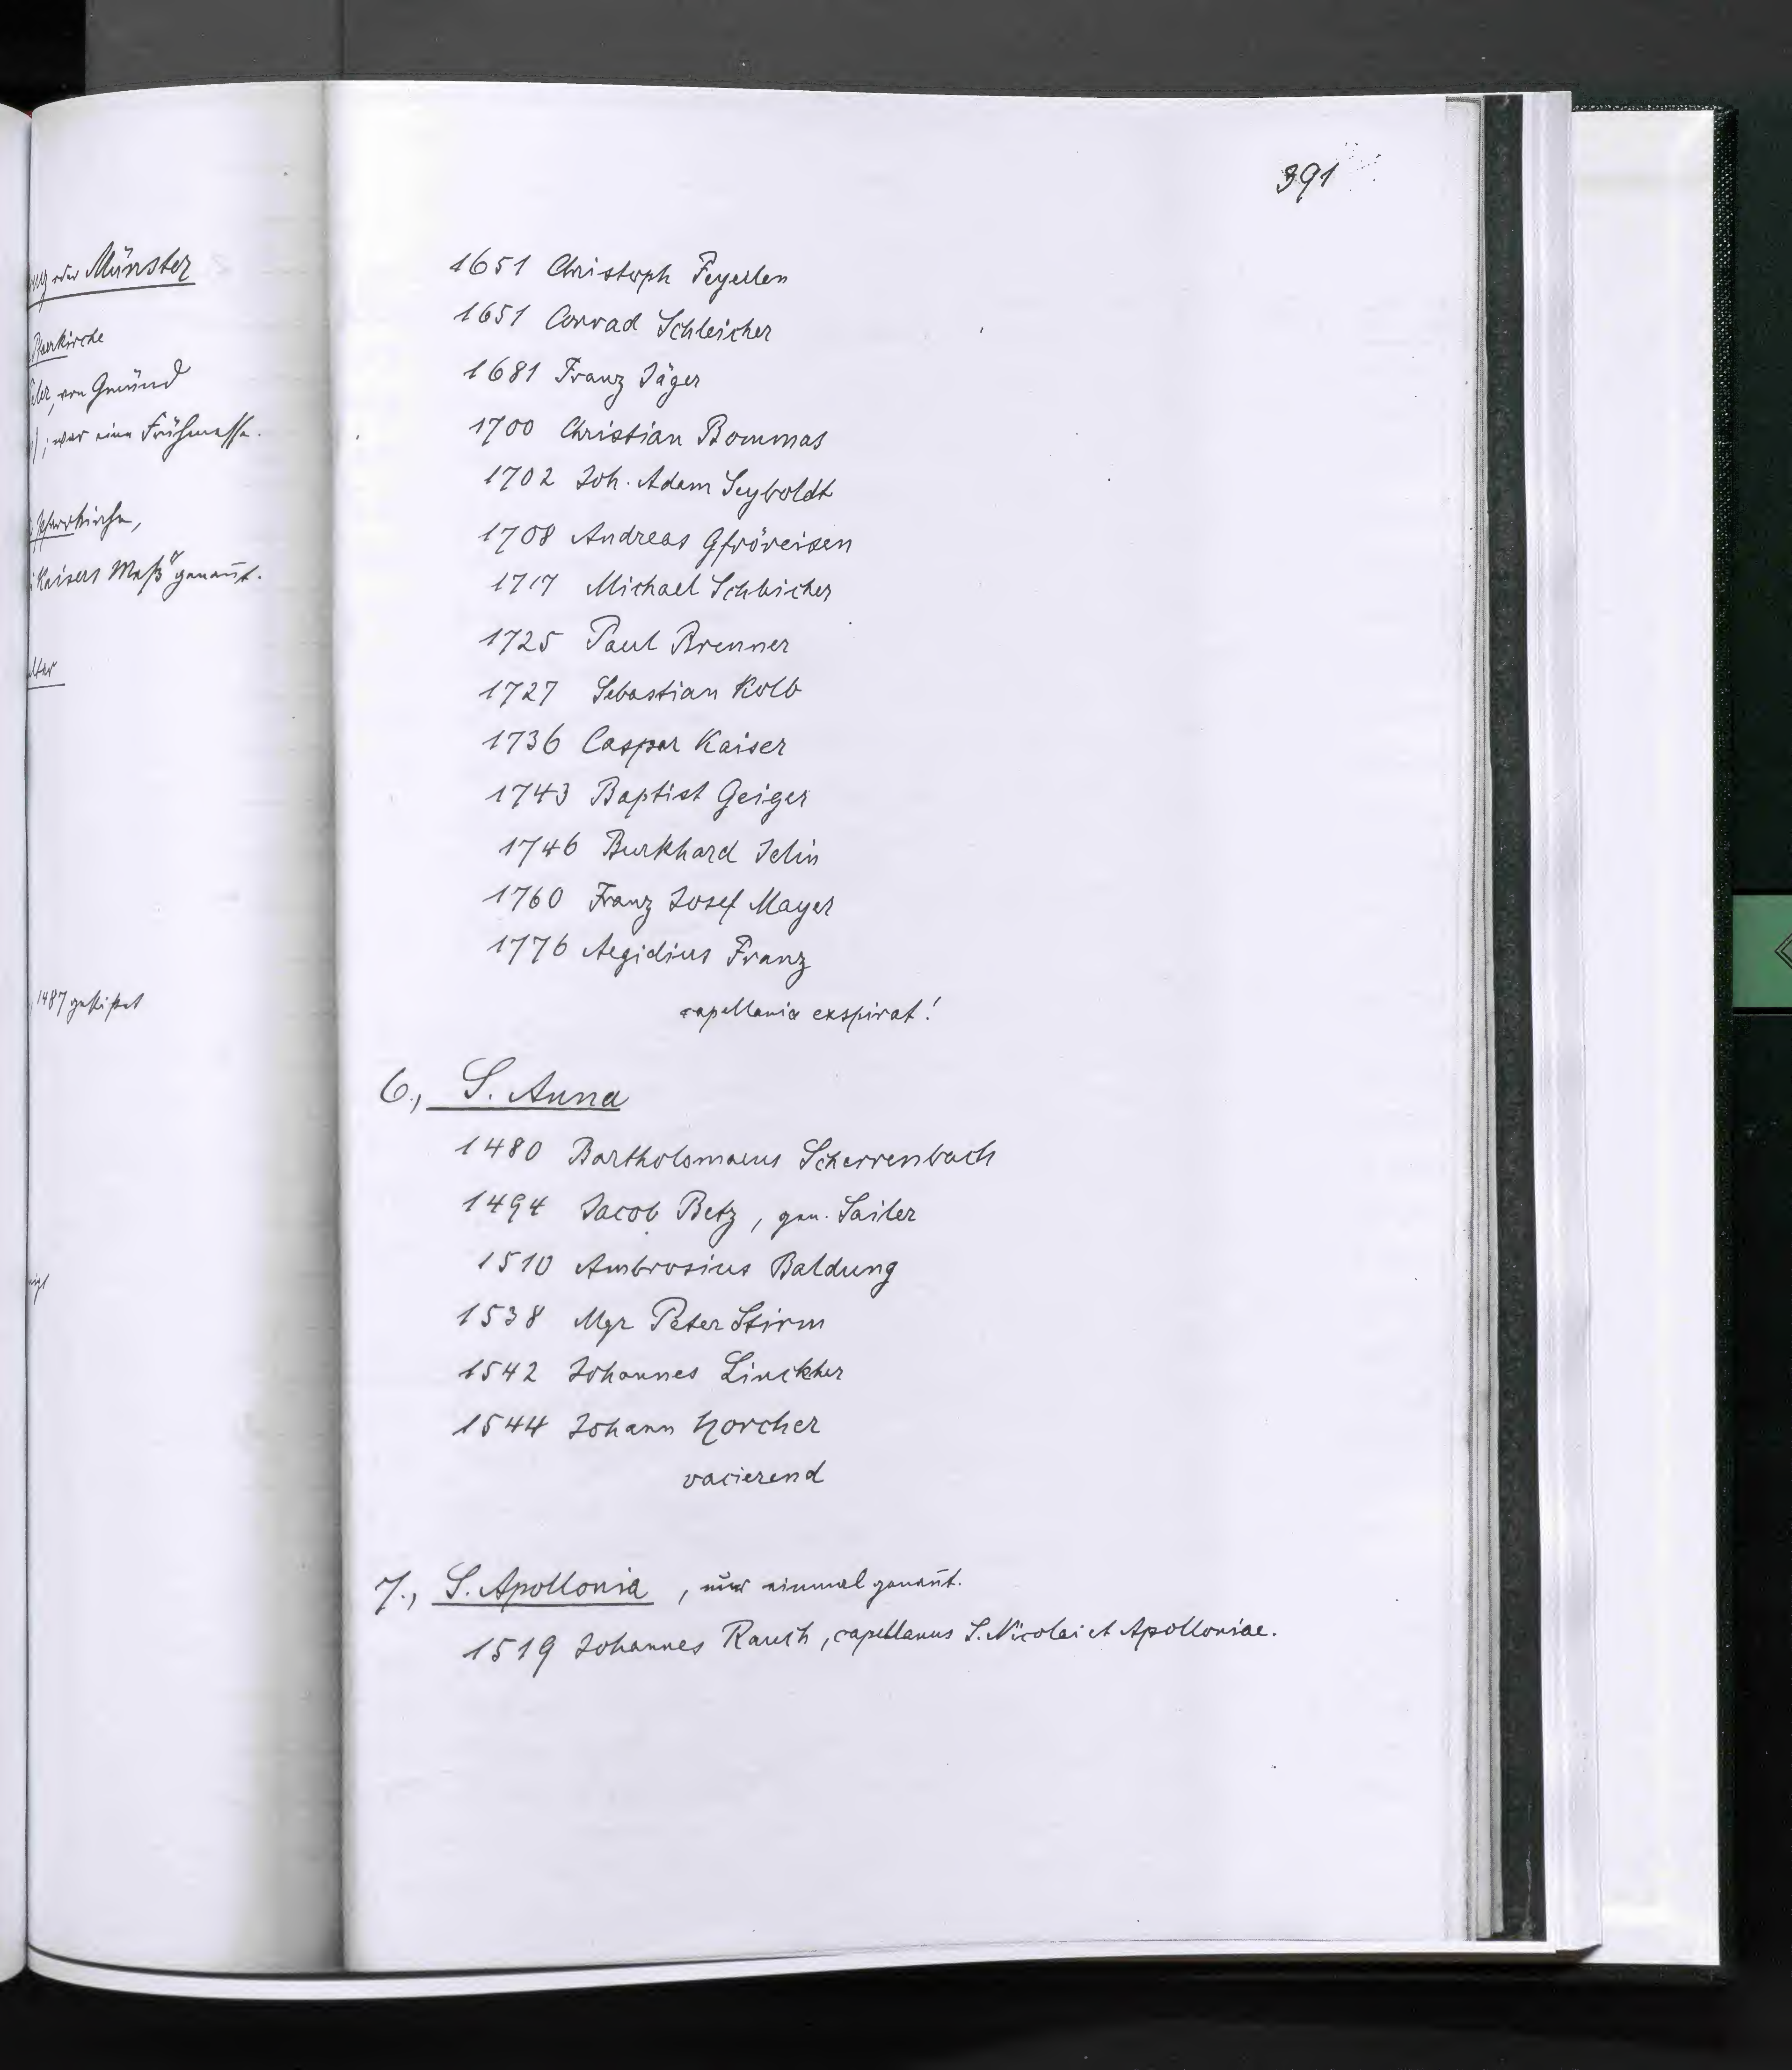 391
oder Münster
Pfarrkirche
von Gmünd
; war eine Frühmesse.
Pfarrkirche,
Kaisers Meß" genañt.
1487 gestiftet
1651 Christoph Feyerlen
1651 Conrad Schleicher
1681 Franz Jäger
1700 Christian Bommas
1702 Joh. Adam Seyboldt
1708 Andreas Gfröreisen
1717 Michael Schleicher
1725 Paul Brenner
1727 Sebastian Kolb
1736 Caspar Kaiser
1743 Baptist Geiger
1746 Burkhard Jelin
1760 Franz Josef Mayer
1776 Aegidius Franz
capellania exspirat!
6., S. Anna
1480 Bartholomaeus Scherrenbach
1494 Jacob Betz, gen. Sailer
1510 Ambrosius Baldung
1538 Mgr Peter Stirm
1542 Johannes Linckher
1544 Johann Horcher
vacierend
7., S. Apollonia, nur einmal genañt.
1519 Johannes Rauch, capellanus S. Nicolai et Apolloniae.